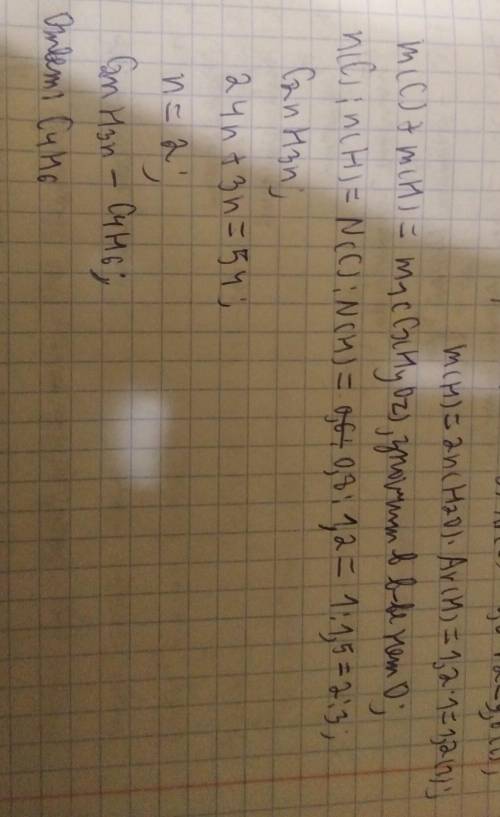 m(H) = 2n(H2O)·Ar(H) = 1,2·1 = 1,2(г);
m(C) + m(H) = m1(CxHyOz), значит в в-ве нет O;
n(C) : n(H) = N(C) : N(H) = 0,8 : 1,2 = 1:1,5 = 2:3;
C2nH3n;
24n + 3n = 54;
n = 2;
C2nH3n – C4H6;
Ответ: C4H6